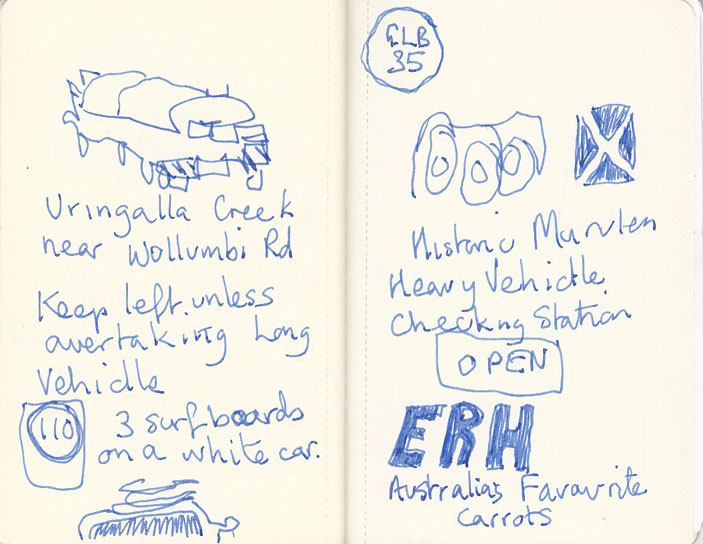 Uringalla Creek
near Wollumbi Rd
Keep left.unless
overtaking Long
Vehidle
110
3 surfboards
on a white car.
GLB
35
Historic Marulen
Heavy Vehidle
Checking Station
OPEN
ERH
Australias Favourite
Carrots